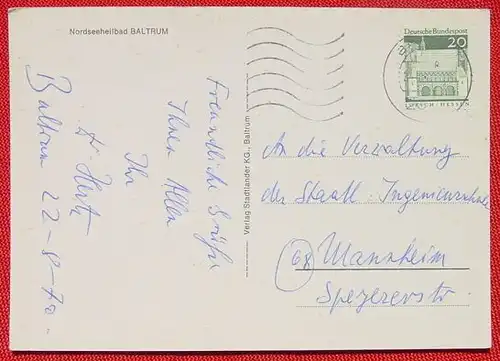 Nordseeheilbad BALTRUM
Freundliche Grüße
Ihnen Allen
Ihr
Dr. Hertz
Baltrum 22-8-70
Verlag Stadtlander KG., Baltrum
Deutsche Bundespost
20
LORSCH · HESSEN
An die Verwaltung
der Staatl. Ingenieurschule
(68) Mannheim
Speyererstr.